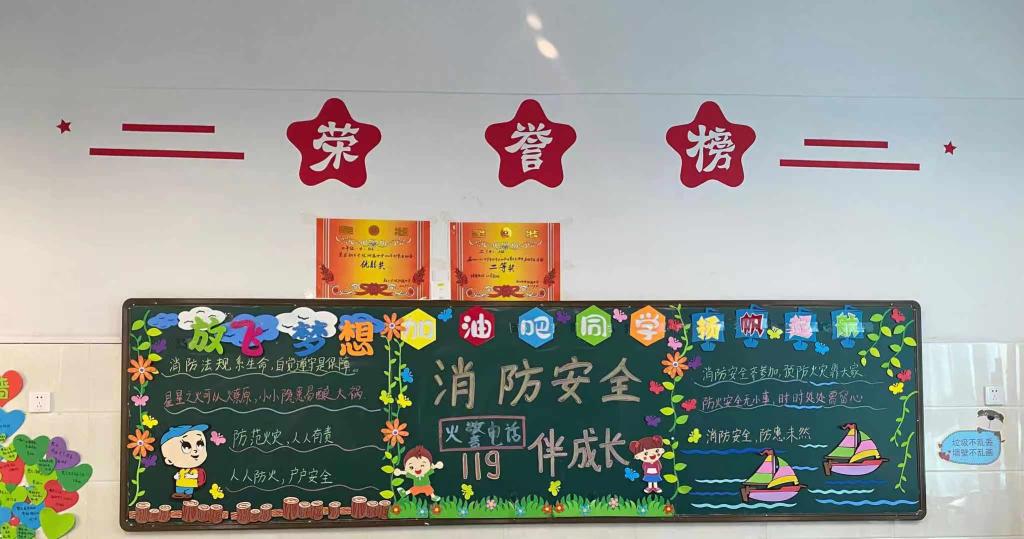 荣誉榜
优胜奖
二等奖
放飞梦想
加油吧同学
扬帆起航
消防法规系生命,自觉遵守是保障。
星星之火可以燎原,小小隐患易酿大祸.
防范火灾,人人有责
人人防火,户户安全
消防安全
火警电话
119
伴成长
消防安全齐参加,预防火灾靠大家.
防火安全无小事,时时处处留留心
消防安全,防患未然
垃圾不乱丢
墙壁不乱画